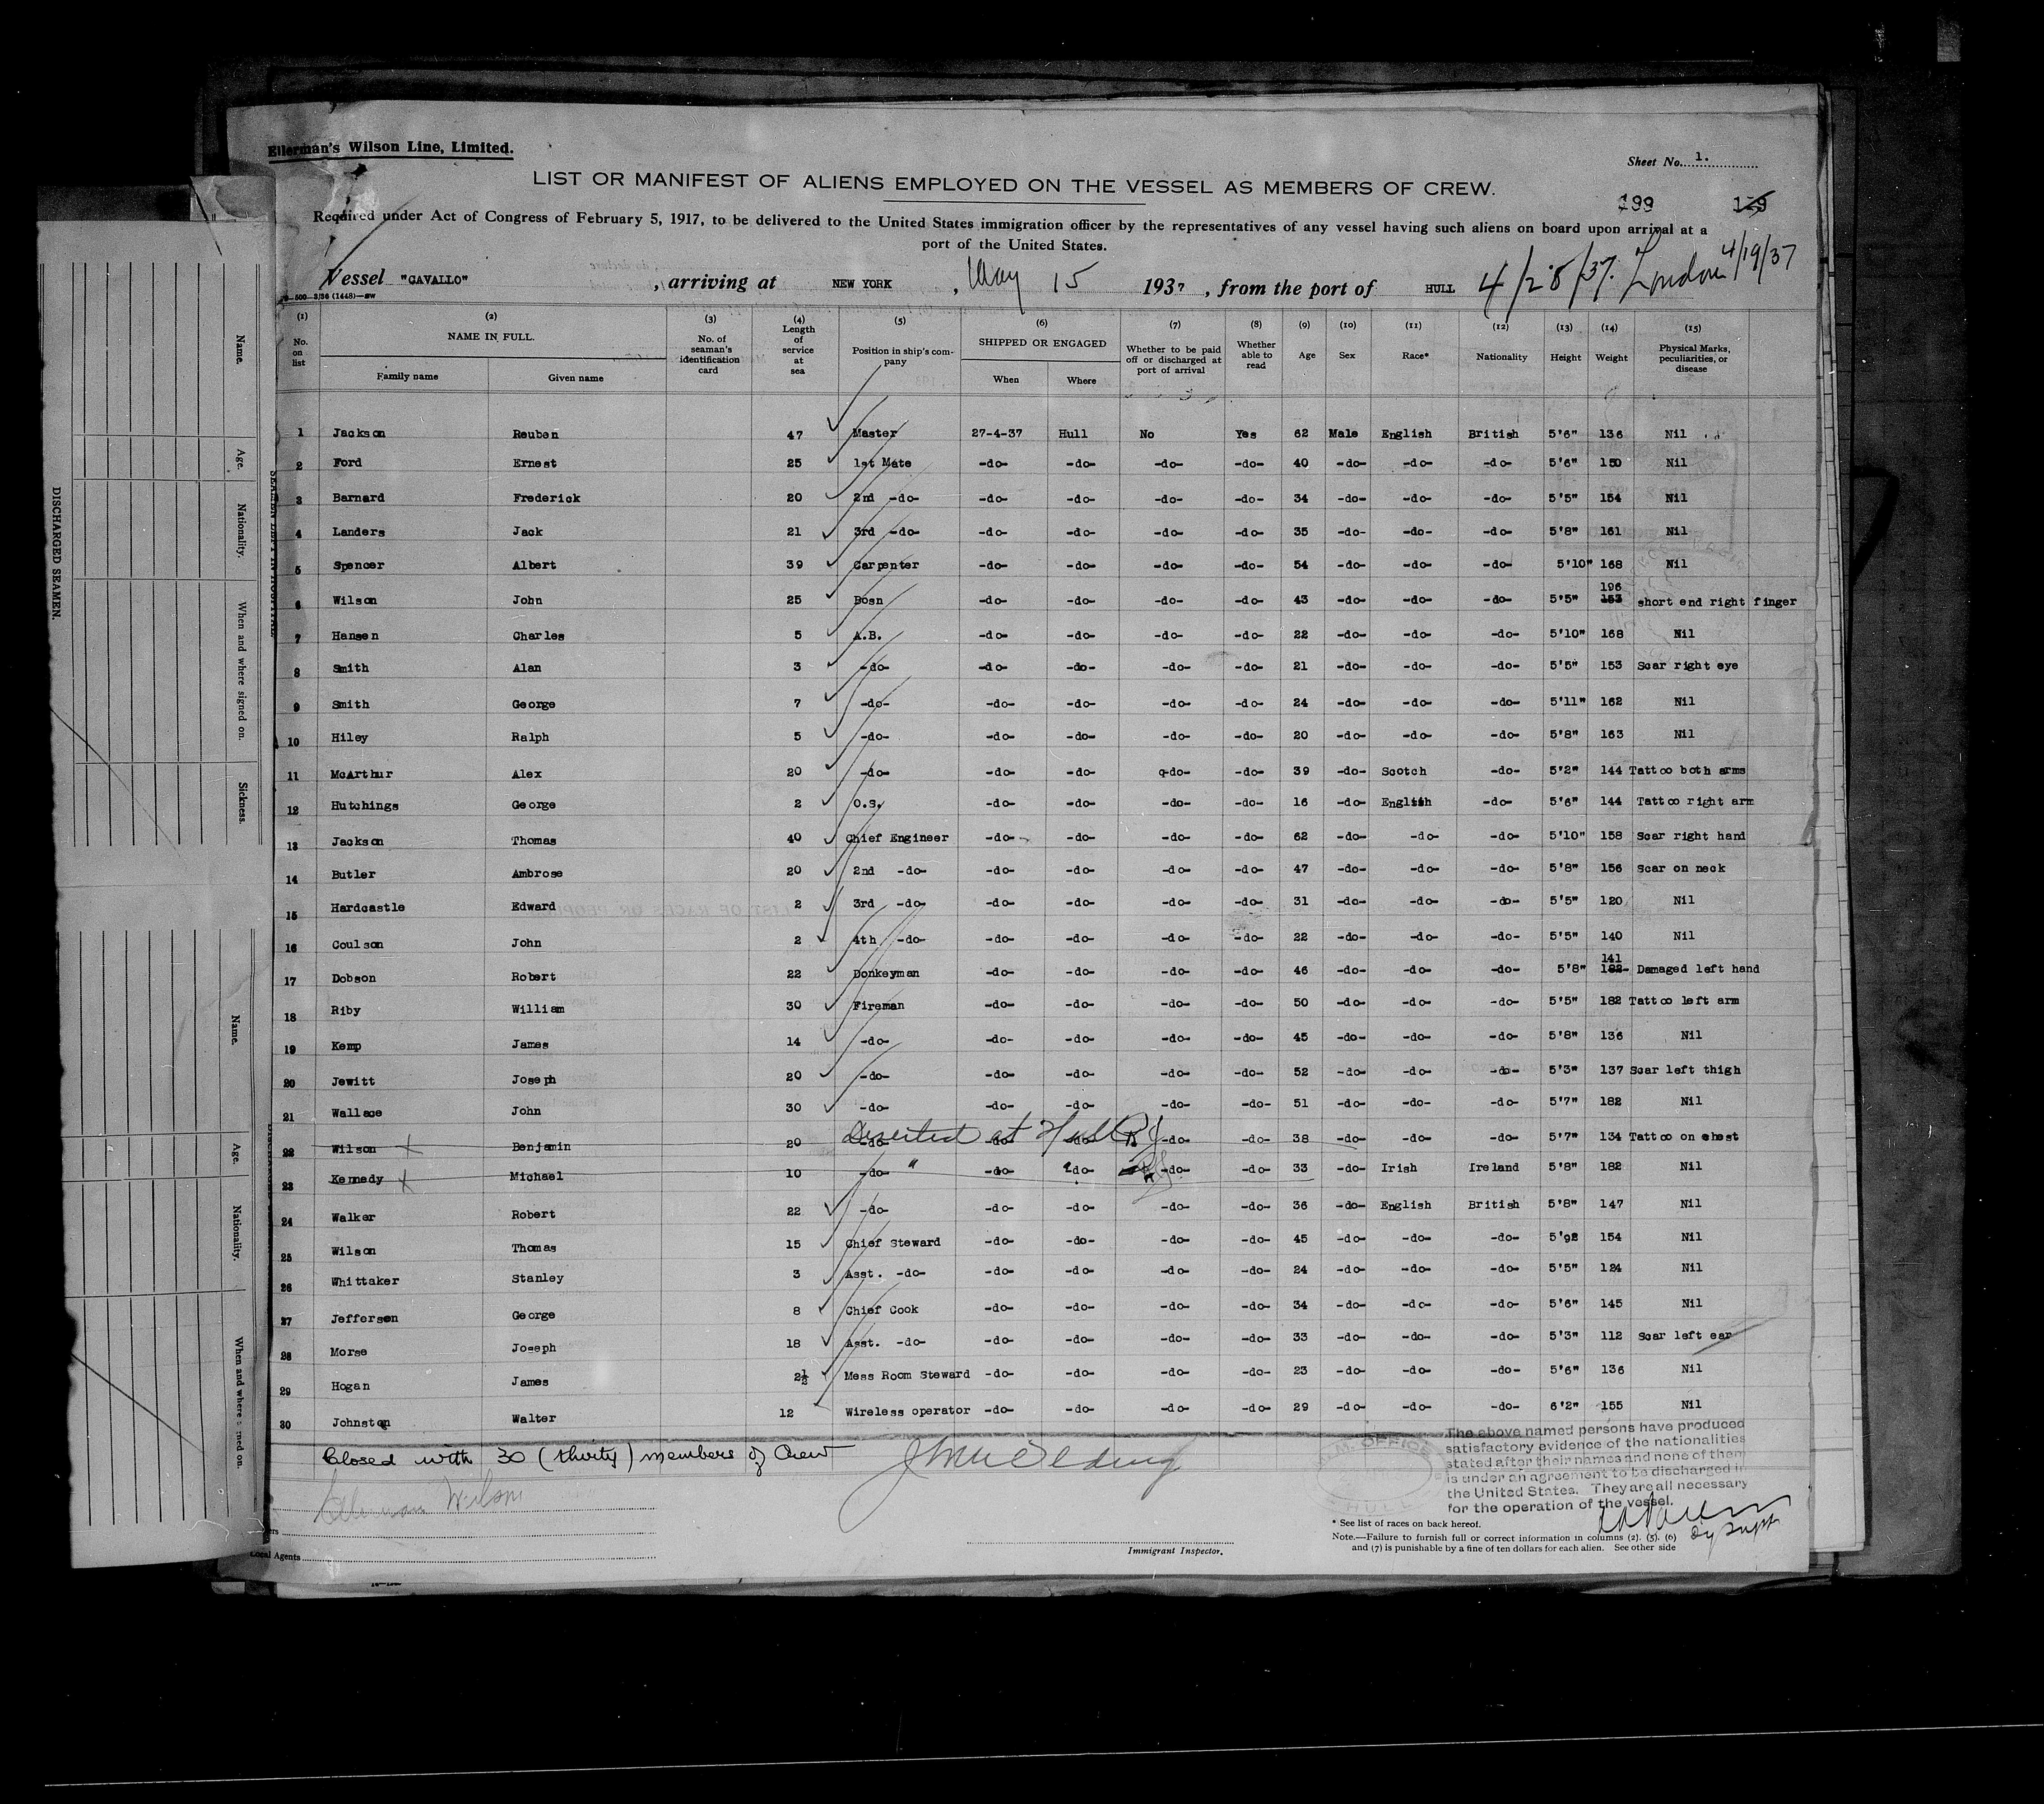 Ellerman's Wilson Line, Limited.
Sheet No. 1.
LIST OR MANIFEST OF ALIENS EMPLOYED ON THE VESSEL AS MEMBERS OF CREW.
199 129
Required under Act of Congress of February 5, 1917, to be delivered to the United States immigration officer by the representatives of any vessel having such aliens on board upon arrival at a
port of the United States.
Vessel "CAVALLO", arriving at NEW YORK, May 15 1937, from the port of HULL 4/28/37. London 4/19/37
(1) (2) (3) (4) (5) (6) (7) (8) (9) (10) (11) (12) (13) (14) (15)
No. on list NAME IN FULL. Family name Given name No. of seaman's identification card Length of service at sea Position in ship's company SHIPPED OR ENGAGED When Where Whether to be paid off or discharged at port of arrival Whether able to read Age Sex Race* Nationality Height Weight Physical Marks, peculiarities, or disease
1 Jackson Reuben 47 Master 27-4-37 Hull No Yes 62 Male English British 5'6" 136 Nil
2 Ford Ernest 25 1st Mate -do- -do- -do- -do- 40 -do- -do- -do- 5'6" 150 Nil
3 Barnard Frederick 20 2nd -do- -do- -do- -do- -do- 34 -do- -do- -do- 5'5" 154 Nil
4 Landers Jack 21 3rd -do- -do- -do- -do- -do- 35 -do- -do- -do- 5'8" 161 Nil
5 Spencer Albert 39 Carpenter -do- -do- -do- -do- 54 -do- -do- -do- 5'10" 168 Nil
6 Wilson John 25 Bosn -do- -do- -do- -do- 43 -do- -do- -do- 5'5" 153 196 short end right finger
7 Hansen Charles 5 A.B. -do- -do- -do- -do- 22 -do- -do- -do- 5'10" 168 Nil
8 Smith Alan 3 -do- -do- -do- -do- -do- 21 -do- -do- -do- 5'5" 153 Scar right eye
9 Smith George 7 -do- -do- -do- -do- -do- 24 -do- -do- -do- 5'11" 162 Nil
10 Hiley Ralph 5 -do- -do- -do- -do- -do- 20 -do- -do- -do- 5'8" 163 Nil
11 McArthur Alex 20 -do- -do- -do- q-do- -do- 39 -do- Scotch -do- 5'2" 144 Tattoo both arms
12 Hutchings George 2 O.S. -do- -do- -do- -do- 16 -do- English -do- 5'6" 144 Tattoo right arm
13 Jackson Thomas 40 Chief Engineer -do- -do- -do- -do- 62 -do- -do- -do- 5'10" 158 Scar right hand
14 Butler Ambrose 20 2nd -do- -do- -do- -do- -do- 47 -do- -do- -do- 5'8" 156 Scar on neck
15 Hardcastle Edward 2 3rd -do- -do- -do- -do- -do- 31 -do- -do- -do- 5'5" 120 Nil
16 Coulson John 2 4th -do- -do- -do- -do- -do- 22 -do- -do- -do- 5'5" 140 Nil
17 Dobson Robert 22 Donkeyman -do- -do- -do- -do- 46 -do- -do- -do- 5'8" 182 141 Damaged left hand
18 Riby William 30 Fireman -do- -do- -do- -do- 50 -do- -do- -do- 5'5" 182 Tattoo left arm
19 Kemp James 14 -do- -do- -do- -do- -do- 45 -do- -do- -do- 5'8" 136 Nil
20 Jewitt Joseph 20 -do- -do- -do- -do- -do- 52 -do- -do- -do- 5'3" 137 Scar left thigh
21 Wallace John 30 -do- -do- -do- -do- -do- 51 -do- -do- -do- 5'7" 182 Nil
22 Wilson x Benjamin 20 -do- Deserted at Hull RJ -do- -do- -do- -do- 38 -do- -do- -do- 5'7" 134 Tattoo on chest
23 Kennedy x Michael 10 -do- " -do- " -do- RJ -do- -do- 33 -do- Irish Ireland 5'8" 182 Nil
24 Walker Robert 22 -do- -do- -do- -do- -do- 36 -do- English British 5'8" 147 Nil
25 Wilson Thomas 15 Chief Steward -do- -do- -do- -do- 45 -do- -do- -do- 5'92 154 Nil
26 Whittaker Stanley 3 Asst. -do- -do- -do- -do- -do- 24 -do- -do- -do- 5'5" 124 Nil
27 Jefferson George 8 Chief Cook -do- -do- -do- -do- 34 -do- -do- -do- 5'6" 145 Nil
28 Morse Joseph 18 Asst. -do- -do- -do- -do- -do- 33 -do- -do- -do- 5'3" 112 Scar left ear
29 Hogan James 2½ Mess Room Steward -do- -do- -do- -do- 23 -do- -do- -do- 5'6" 136 Nil
30 Johnston Walter 12 Wireless operator -do- -do- -do- -do- 29 -do- -do- -do- 6'2" 155 Nil
Closed with 30 (thirty) members of Crew
The above named persons have produced
satisfactory evidence of the nationalities
stated after their names and none of them
is under an agreement to be discharged in
the United States. They are all necessary
for the operation of the vessel.
Ellerman Wilson
HULL
* See list of races on back hereof.
Note.—Failure to furnish full or correct information in columns (2). (5). (6)
and (7) is punishable by a fine of ten dollars for each alien. See other side
Local Agents
Immigrant Inspector.
DISCHARGED SEAMEN.
Name. Age. Nationality. When and where signed on. Sickness.
Name. Age. Nationality. When and where signed on.